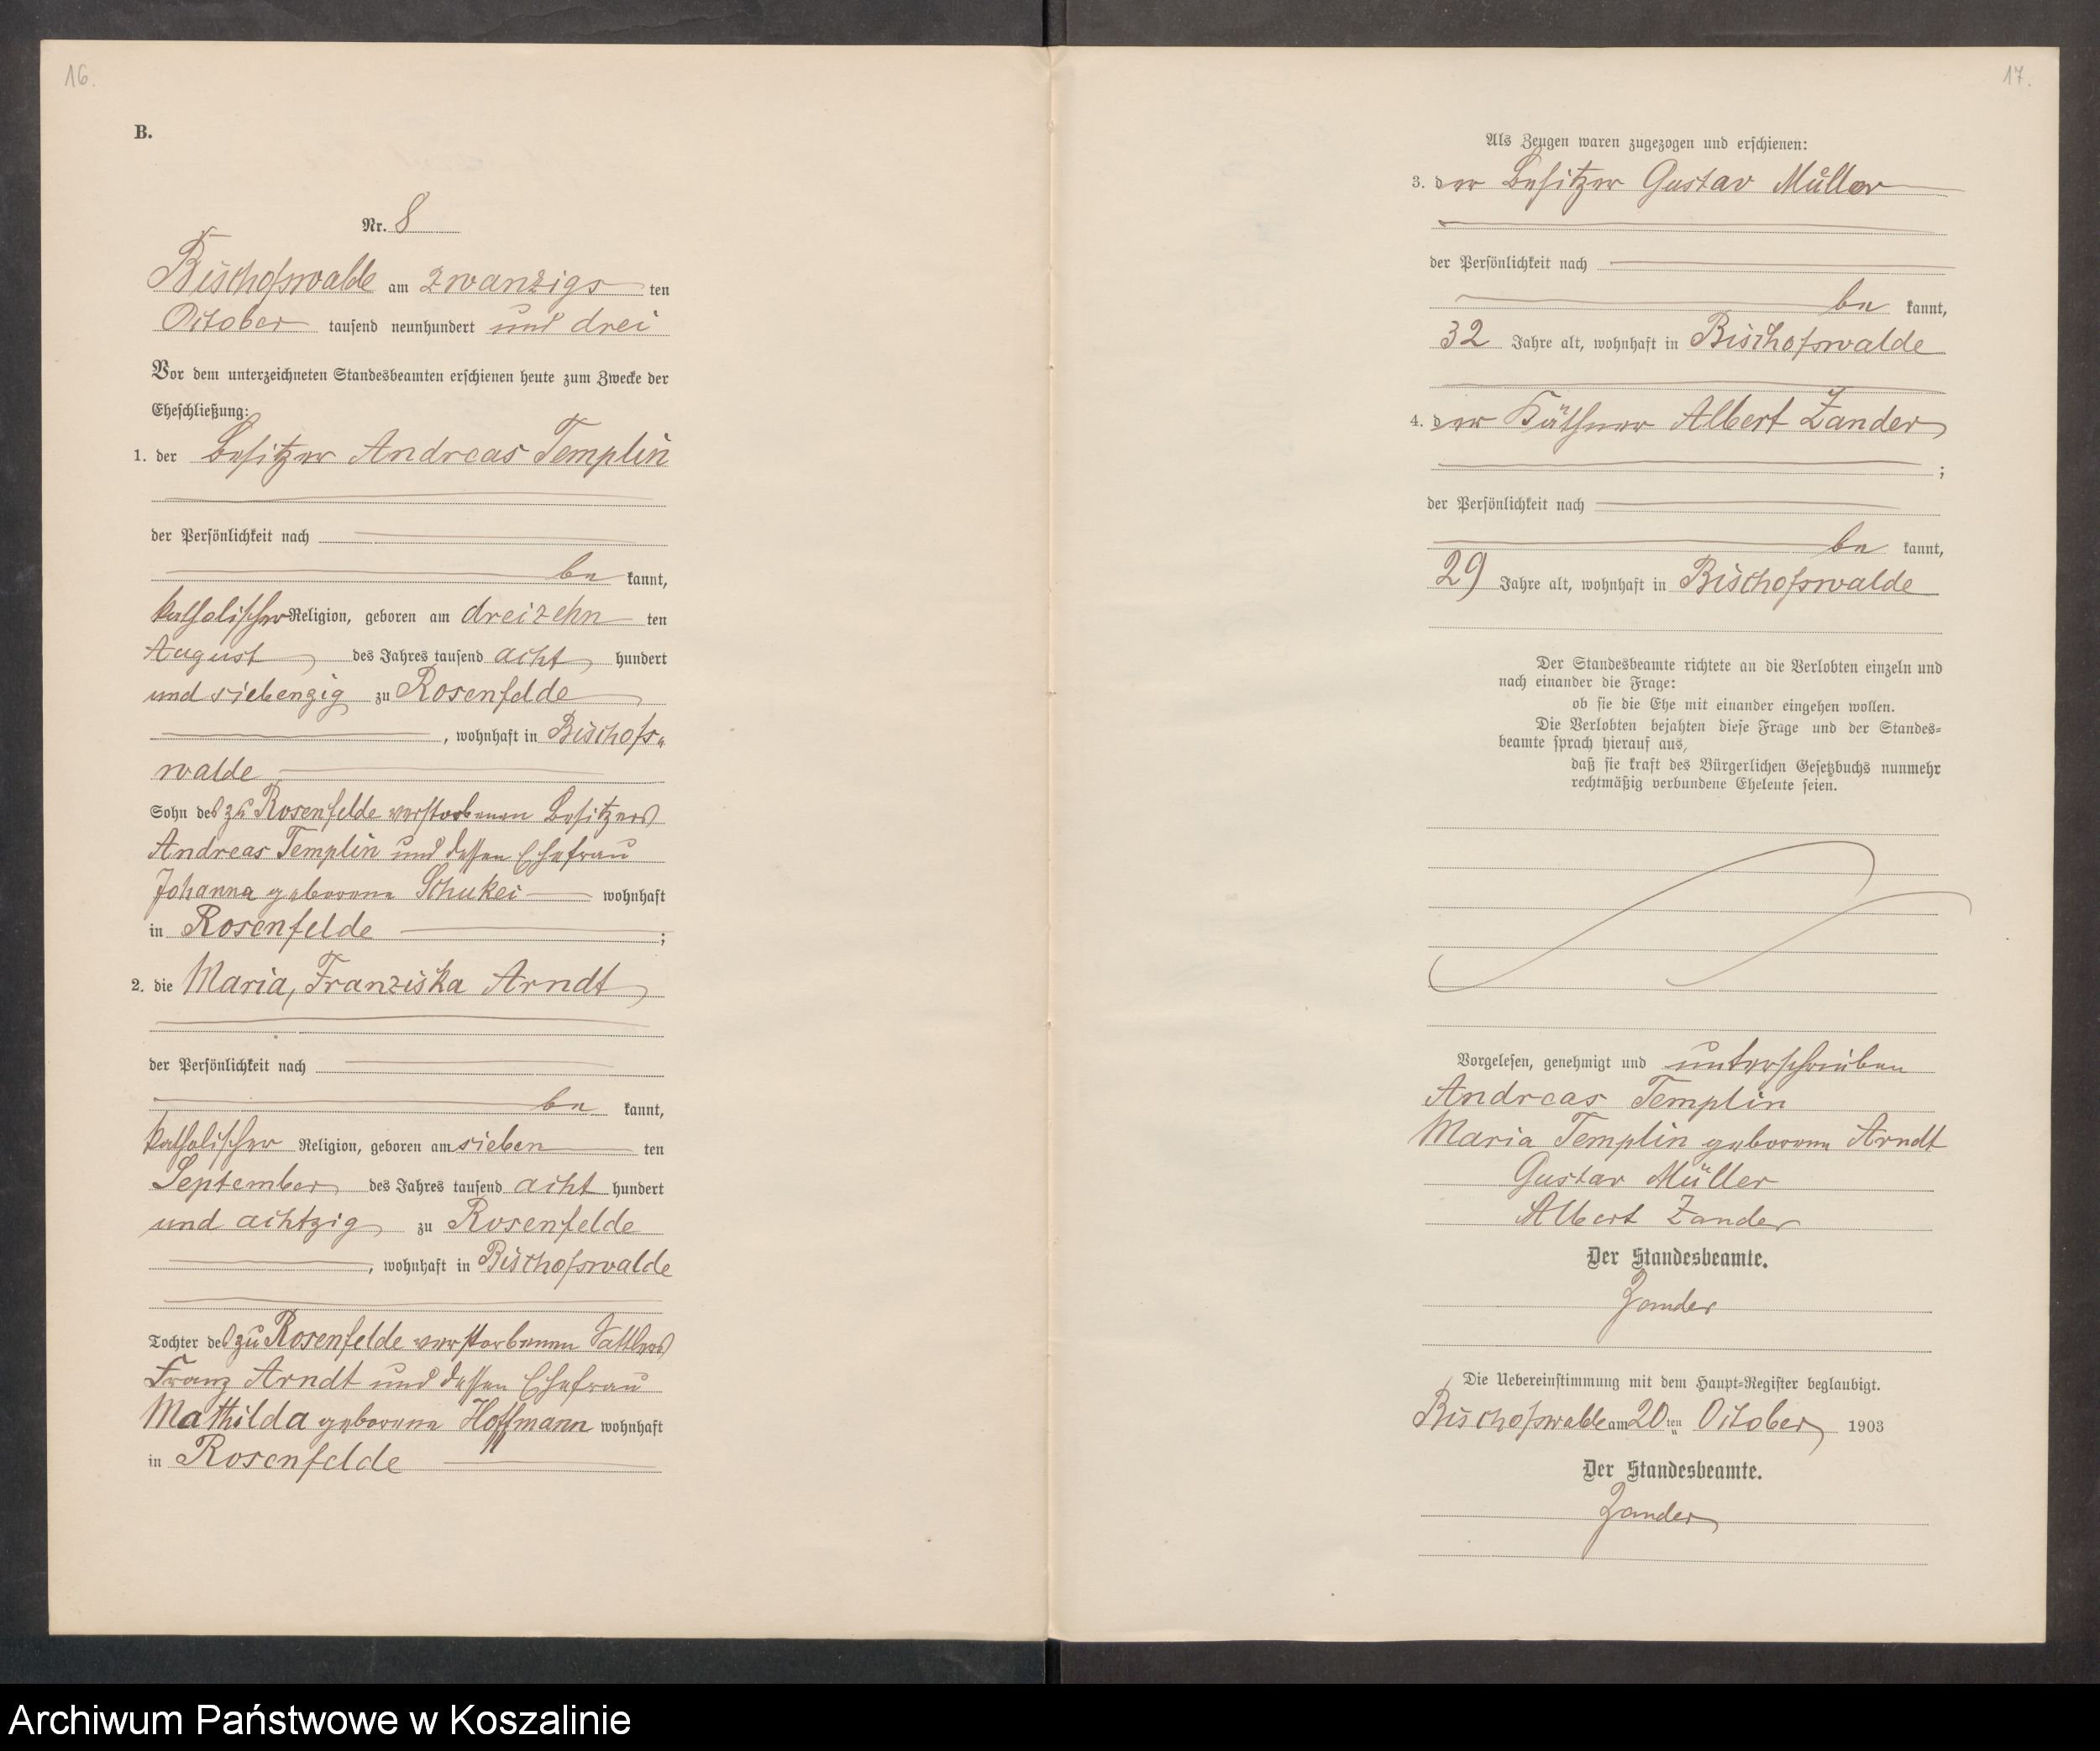 16.
B.
Nr. 8
Bischofswalde am zwanzigs ten
October tausend neunhundert und drei
Vor dem unterzeichneten Standesbeamten erschienen heute zum Zwecke der
Eheschließung:
1. der Besitzer Andreas Templin
der Persönlichkeit nach
be kannt,
katholischer Religion, geboren am dreizehn ten
August des Jahres tausend acht hundert
und siebenzig zu Rosenfelde
, wohnhaft in Bischofs„
walde
Sohn des zu Rosenfelde verstorbenen Besitzers
Andreas Templin und dessen Ehefrau
Johanna geborene Schukei wohnhaft
in Rosenfelde ;
2. die Maria, Franziska Arndt
der Persönlichkeit nach
be kannt,
katholischer Religion, geboren am sieben ten
September des Jahres tausend acht hundert
und achtzig zu Rosenfelde
, wohnhaft in Bischofswalde
Tochter des zu Rosenfelde verstorbenen Sattlers
Franz Arndt und dessen Ehefrau
Mathilda geborene Hoffmann wohnhaft
in Rosenfelde
17.
Als Zeugen waren zugezogen und erschienen:
3. der Besitzer Gustav Müller
der Persönlichkeit nach
be kannt,
32 Jahre alt, wohnhaft in Bischofswalde
4. der Käthner Albert Zander
;
der Persönlichkeit nach
be kannt,
29 Jahre alt, wohnhaft in Bischofswalde
Der Standesbeamte richtete an die Verlobten einzeln und
nach einander die Frage:
ob sie die Ehe mit einander eingehen wollen.
Die Verlobten bejahten diese Frage und der Standes-
beamte sprach hierauf aus,
daß sie kraft des Bürgerlichen Gesetzbuchs nunmehr
rechtmäßig verbundene Eheleute seien.
Vorgelesen, genehmigt und unterschrieben
Andreas Templin
Maria Templin geborene Arndt
Gustav Müller
Albert Zander
Der Standesbeamte.
Zander
Die Uebereinstimmung mit dem Haupt-Register beglaubigt.
Bischofswalde am 20 ten October 1903
Der Standesbeamte.
Zander
Archiwum Państwowe w Koszalinie